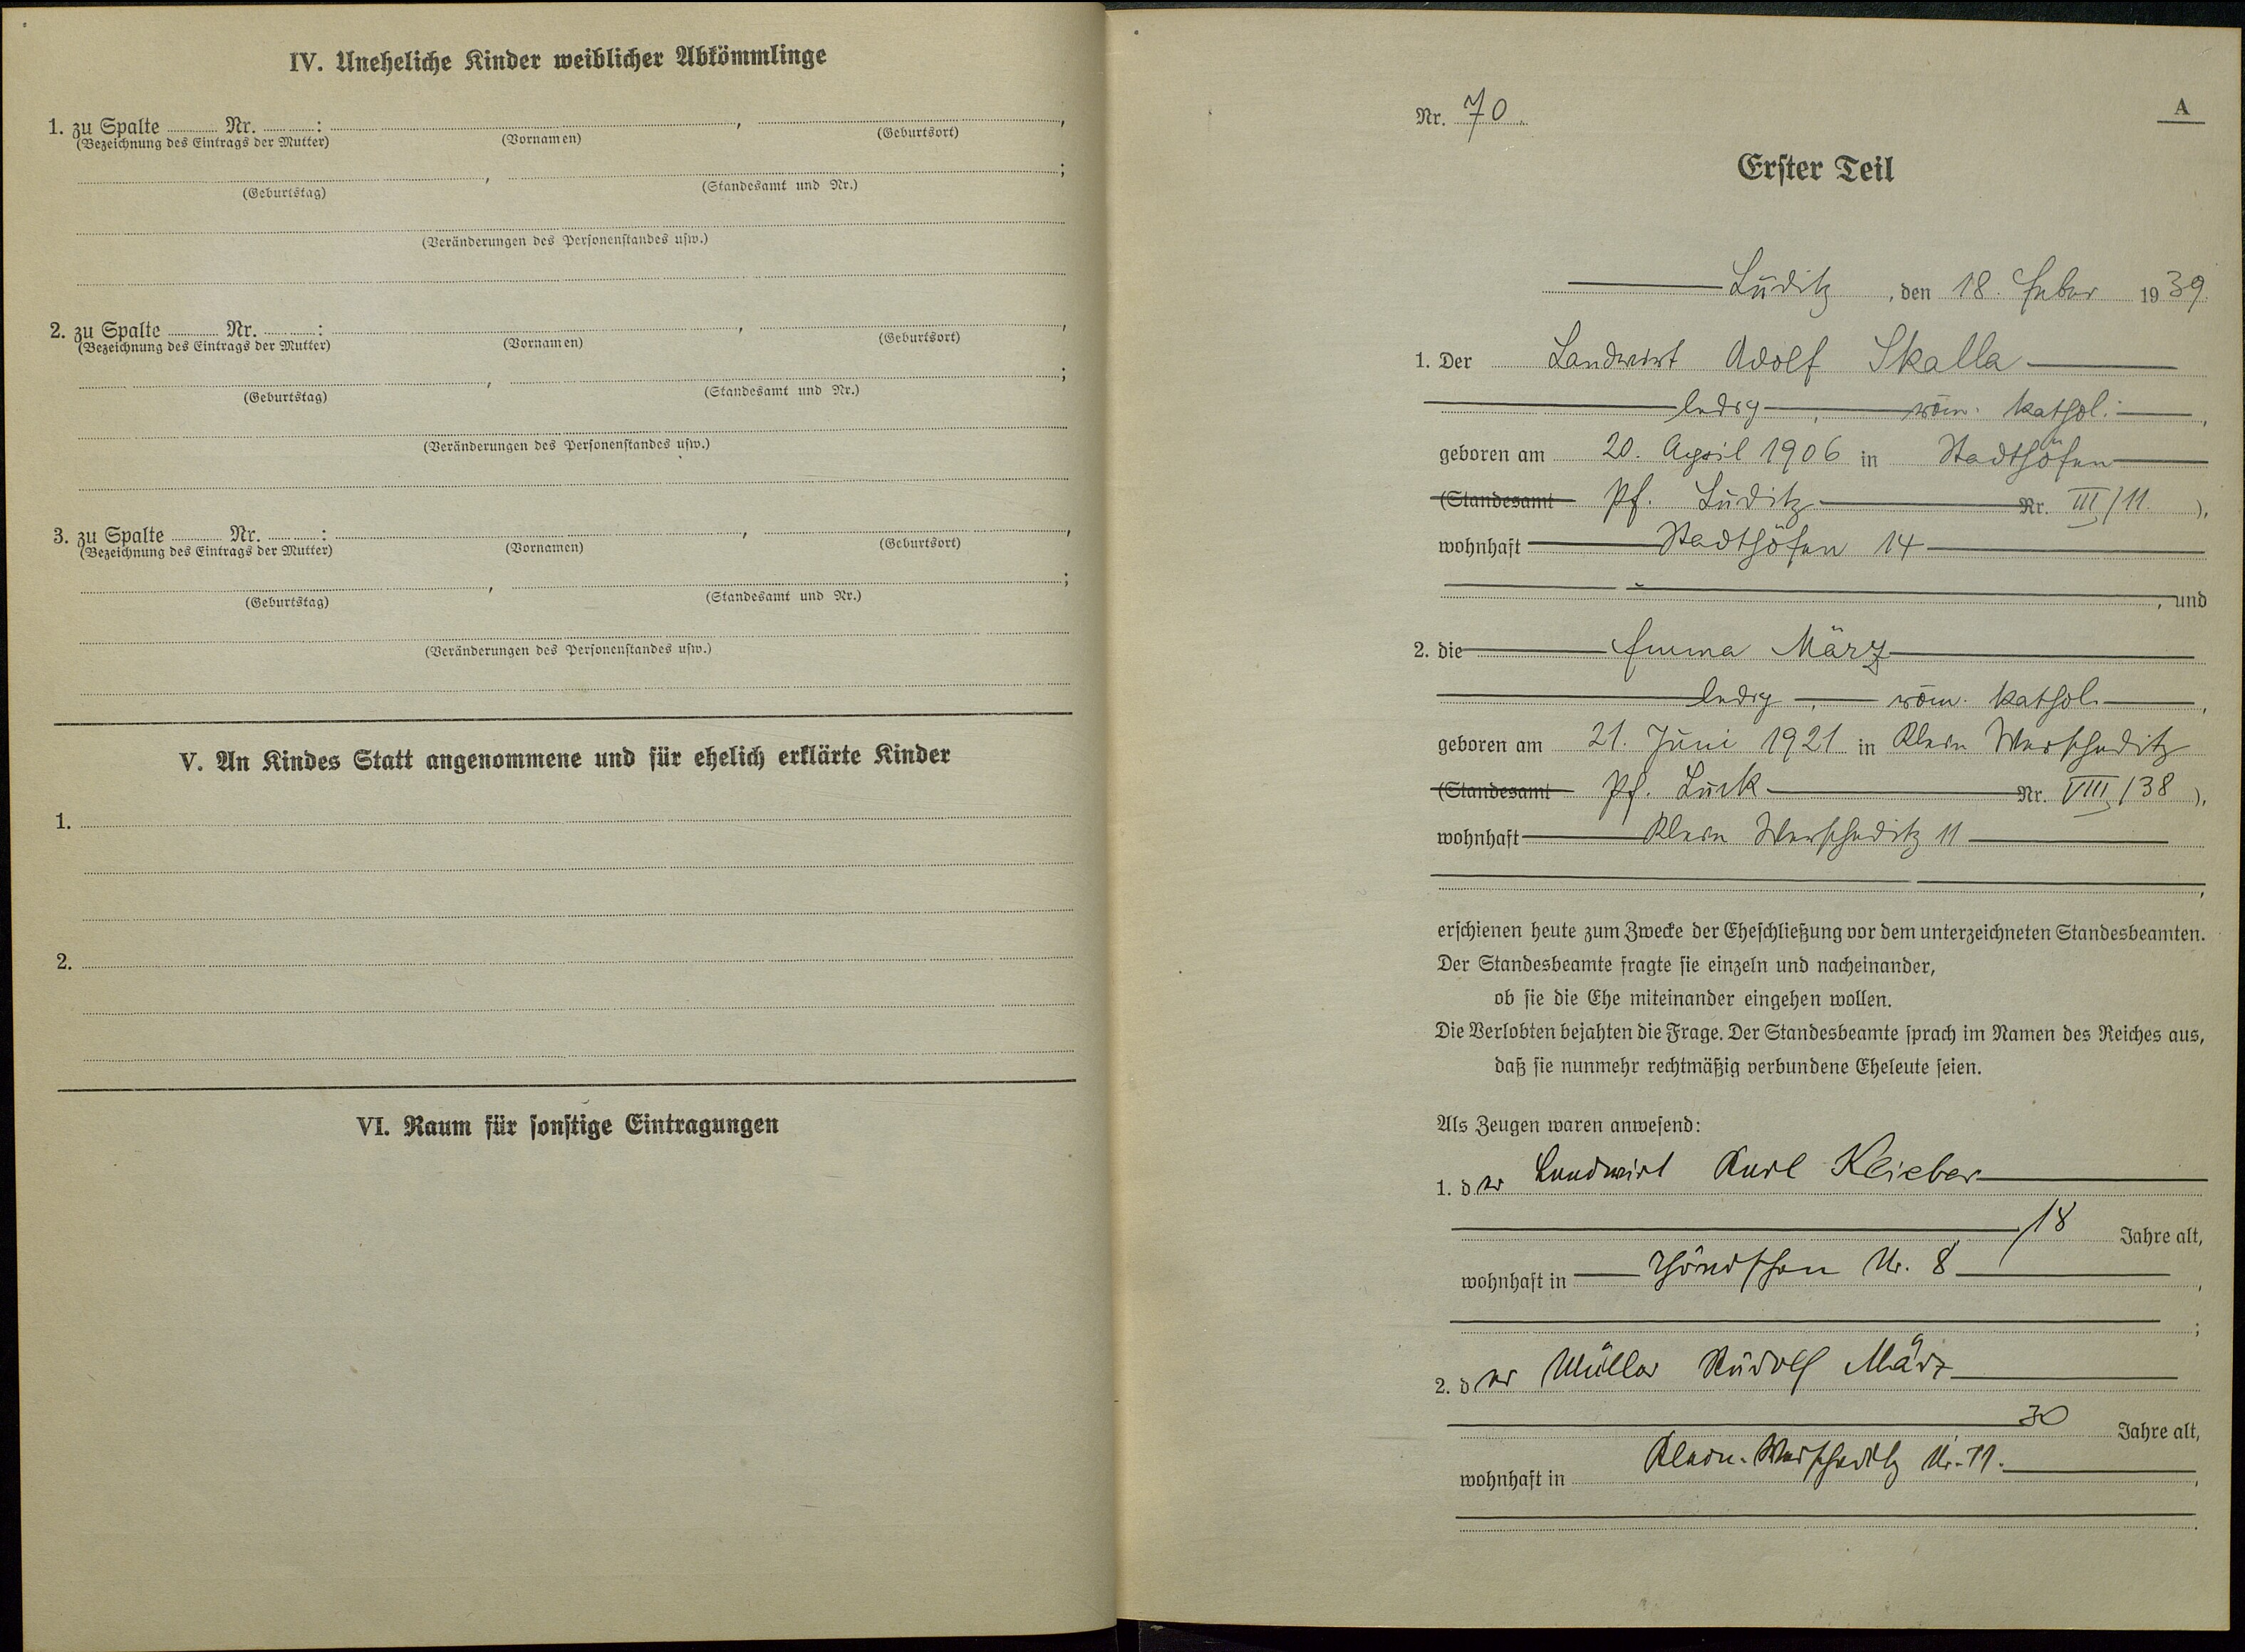 IV. Uneheliche Kinder weiblicher Abkömmlinge
1. zu Spalte Nr. : , ,
(Bezeichnung des Eintrags der Mutter) (Vornamen) (Geburtsort)
, ;
(Geburtstag) (Standesamt und Nr.)
(Veränderungen des Personenstandes usw.)
2. zu Spalte Nr. : , ,
(Bezeichnung des Eintrags der Mutter) (Vornamen) (Geburtsort)
, ;
(Geburtstag) (Standesamt und Nr.)
(Veränderungen des Personenstandes usw.)
3. zu Spalte Nr. : , ,
(Bezeichnung des Eintrags der Mutter) (Vornamen) (Geburtsort)
, ;
(Geburtstag) (Standesamt und Nr.)
(Veränderungen des Personenstandes usw.)
V. An Kindes Statt angenommene und für ehelich erklärte Kinder
1.
2.
VI. Raum für sonstige Eintragungen
Nr. 70.
A
Erster Teil
Luditz, den 18. Feber 1939.
1. Der Landwirt Adolf Skalla
ledig, röm. kathol.,
geboren am 20. April 1906 in Stadthöfen
(Standesamt Pf. Luditz Nr. III/11.),
wohnhaft Stadthöfen 14
, und
2. die Emma März
ledig, röm. kathol.,
geboren am 21. Juni 1921 in Klein Werscheditz
(Standesamt Pf. Luck Nr. VIII/38),
wohnhaft Klein Werscheditz 11
,
erschienen heute zum Zwecke der Eheschließung vor dem unterzeichneten Standesbeamten.
Der Standesbeamte fragte sie einzeln und nacheinander,
ob sie die Ehe miteinander eingehen wollen.
Die Verlobten bejahten die Frage. Der Standesbeamte sprach im Namen des Reiches aus,
daß sie nunmehr rechtmäßig verbundene Eheleute seien.
Als Zeugen waren anwesend:
1. der Landwirt Karl Klieber
Jahre alt,
wohnhaft in Nr. 8,
;
2. der Müller Rudolf März
30 Jahre alt,
wohnhaft in Klein-Werscheditz Nr. 11.,
.